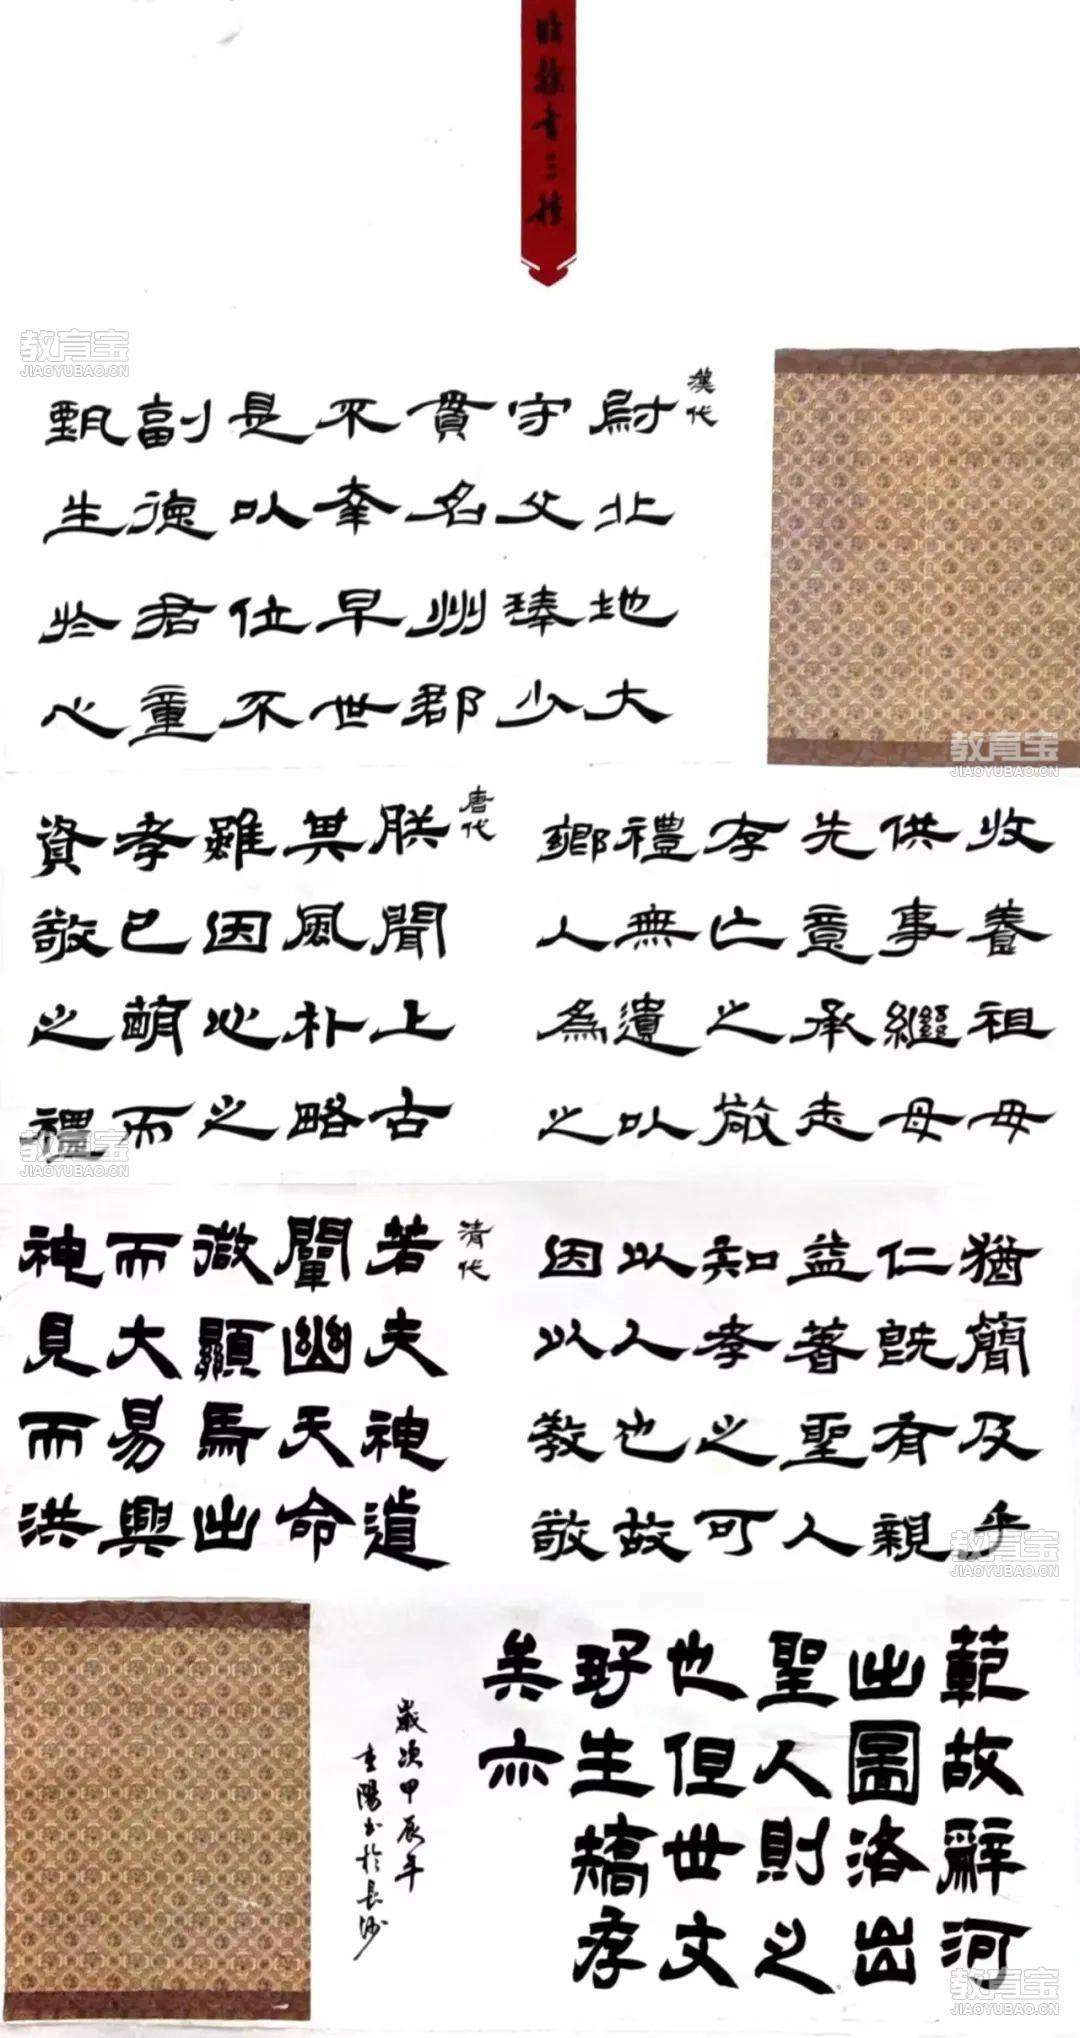 臨隸書三種
漢代
尉北地大
守父琫少
貫名州郡
不幸早世
是以位不
副德君童
甄生於心
收養祖母
供事繼母
先意承志
存亡之敬
禮無遺以
鄉人為之
唐代
朕聞上古
其風朴略
雖因心之
孝已萌而
資敬之禮
猶簡及乎
仁既有親
益著聖人
知孝之可
以人也故
因以教敬
清代
若夫神道
闡幽天命
微顯馬出
而大易興
神見而洪
範故辭河
出圖洛出
聖人則之
也但世文
好生矯存
矣亦
歲次甲辰年
重陽書於長沙
教育宝
JIAOYUBAO.CN
教育宝
JIAOYUBAO.CN
教育宝
JIAOYUBAO.CN
教育宝
JIAOYUBAO.CN
教育宝
JIAOYUBAO.CN